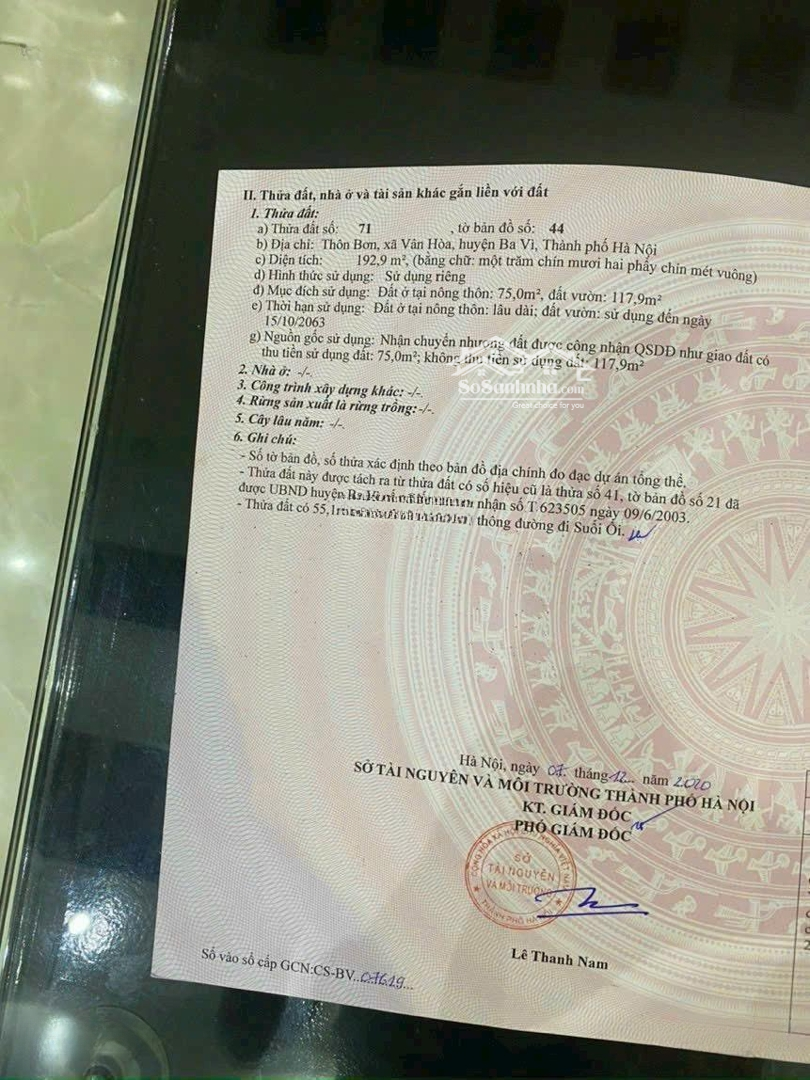 II. Thửa đất, nhà ở và tài sản khác gắn liền với đất
1. Thửa đất:
a) Thửa đất số: 71 , tờ bản đồ số: 44
b) Địa chỉ: Thôn Bơn, xã Vân Hòa, huyện Ba Vì, Thành phố Hà Nội
c) Diện tích: 192,9 m², (bằng chữ: một trăm chín mươi hai phẩy chín mét vuông)
d) Hình thức sử dụng: Sử dụng riêng
đ) Mục đích sử dụng: Đất ở tại nông thôn: 75,0m², đất vườn: 117,9m²
e) Thời hạn sử dụng: Đất ở tại nông thôn: lâu dài; đất vườn: sử dụng đến ngày
15/10/2063
g) Nguồn gốc sử dụng: Nhận chuyển nhượng đất được công nhận QSDĐ như giao đất có
thu tiền sử dụng đất: 75,0m²; không thu tiền sử dụng đất: 117,9m²
2. Nhà ở: -/-.
SoSanhnha.com
Great choice for you
3. Công trình xây dựng khác: -/-.
4. Rừng sản xuất là rừng trồng: -/-.
5. Cây lâu năm: -/-.
6. Ghi chú:
- Số tờ bản đồ, số thửa xác định theo bản đồ địa chính đo đạc dự án tổng thể.
- Thửa đất này được tách ra từ thửa đất có số hiệu cũ là thửa số 41, tờ bản đồ số 21 đã
được UBND huyện nhận số T 623505 ngày 09/6/2003.
- Thửa đất có 55,1 thông đường đi Suối Ổi.
Hà Nội, ngày 07 tháng 12 năm 2020
SỞ TÀI NGUYÊN VÀ MÔI TRƯỜNG THÀNH PHỐ HÀ NỘI
KT. GIÁM ĐỐC
PHÓ GIÁM ĐỐC
SỞ
TÀI NGUYÊN
VÀ MÔI TRƯỜNG
THÀNH PHỐ HÀ NỘI
Lê Thanh Nam
Số vào sổ cấp GCN:CS-BV..07619...